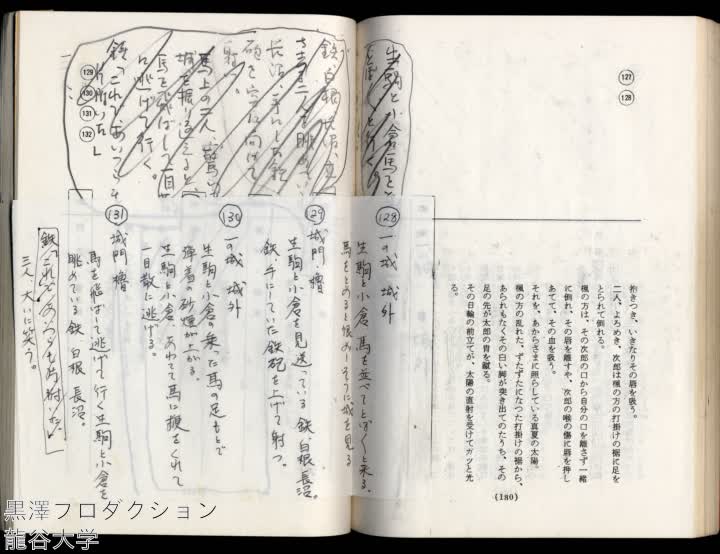 127
128
抱きつき、いきなりその唇を吸う。
二人、よろめき、次郎は楓の方の打掛けの裾に足を
とられて倒れる。
楓の方は、その次郎の口から自分の口を離さず一緒
に倒れ、その唇を離すや、次郎の喉の傷に唇を押し
あてて、その血を吸う。
それを、あからさまに照らしている真夏の太陽。
楓の方の乱れた、ずたずたになった打掛けの裾から、
あられもなくその白い脚が突き出てのたうち、その
足の先が太郎の冑を蹴る。
その日輪の前立てが、太陽の直射を受けてカッと光
る。
(180)
生駒と小倉、馬を
鉄、白根、長沼、
馬上の二人、驚いて
城を振り返ると
馬を飛ばして一目
に逃げて行く。
129
130
131
132
128 一の城 城外
生駒と小倉、馬を並べてとぼとぼと来る。
馬をとめると恨めしそうに城を見る
129 城門・櫓
生駒と小倉を見送っている鉄、白根、長沼。
鉄、手にしていた鉄砲を上げて射つ。
130 一の城 城外
生駒と小倉の乗った馬の足もとで
弾着の砂煙が上がる。
生駒と小倉、あわてて馬に鞭をくれて
一目散に逃げる。
131 城門 櫓
馬を飛ばして逃げて行く生駒と小倉を
眺めている鉄、白根、長沼。
三人、大いに笑う。
黒澤プロダクション
龍谷大学